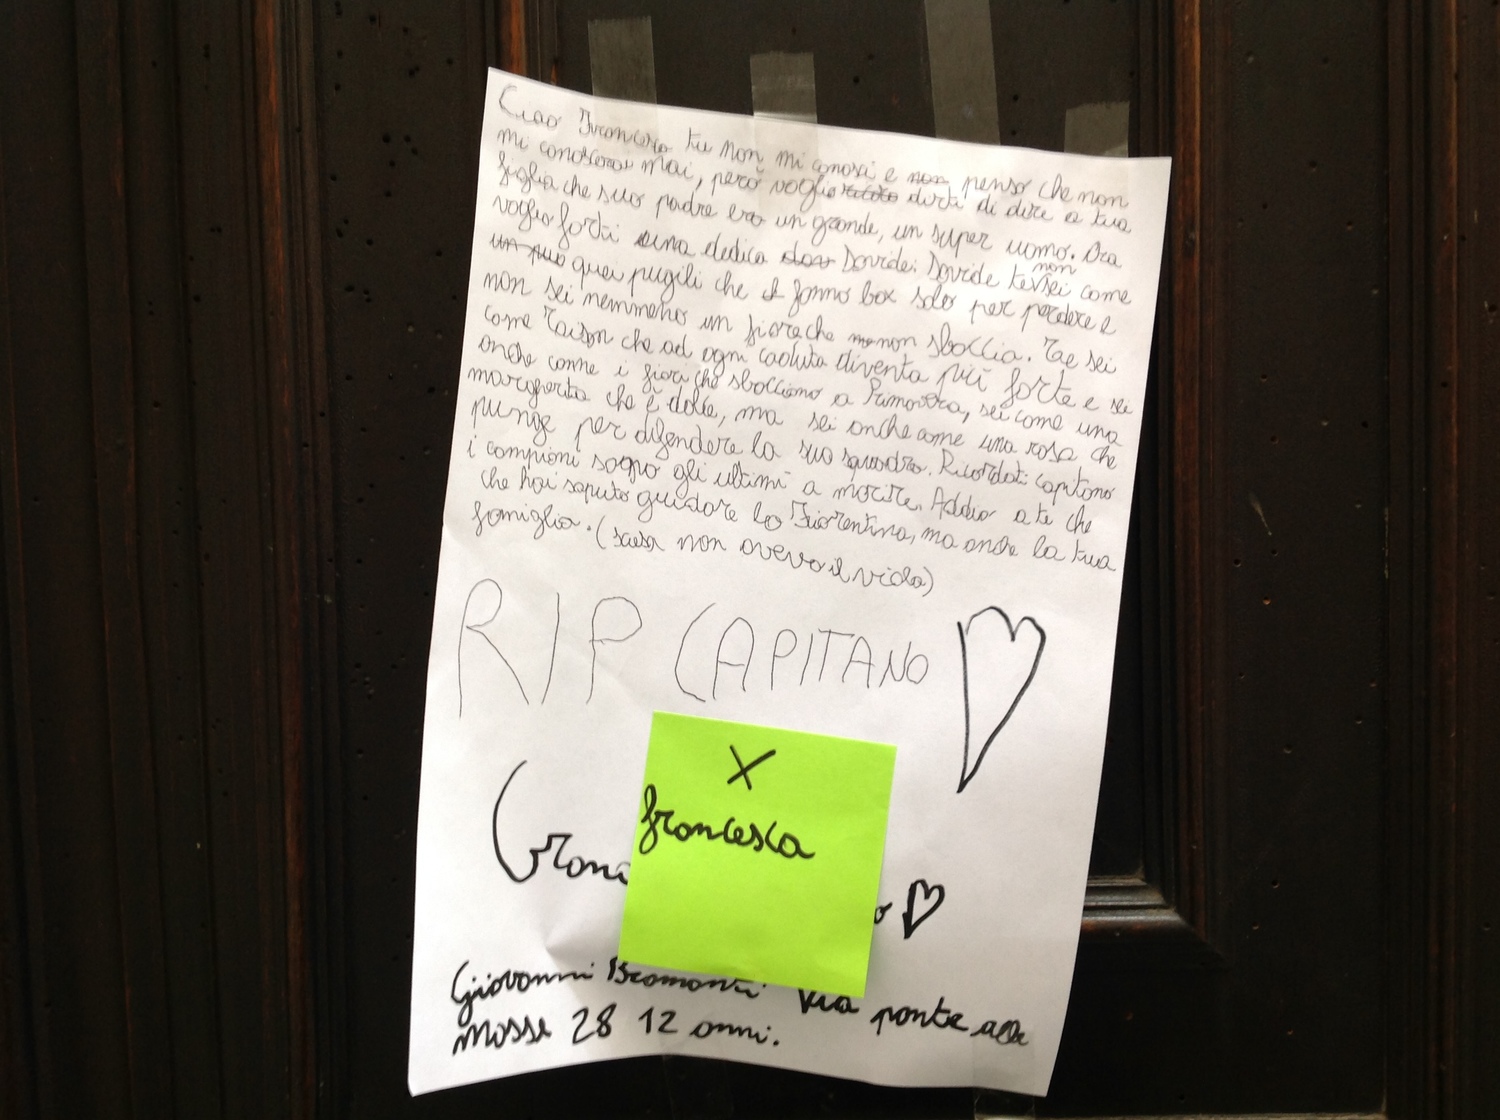 Ciao Francesca tu non mi conosci e non penso che non
mi conoscerai mai, però voglio dirti di dire a tua
figlia che suo padre era un grande, un super uomo. Ora
voglio farti una dedica Davide: Davide te non sei come
un può quei pugili che fanno box solo per perdere e
non sei nemmeno un fiore che non sboccia. Tae sei
come Taison che ad ogni caduta diventa più forte e sei
anche come i fiori che sbocciano a Primavera, sei come una
margherita che è dolce, ma sei anche come una rosa che
punge per difendere la sua squadra. Ricordati capitano
i campioni sono gli ultimi a morire. Addio a te che
che hai saputo guidare la Fiorentina, ma anche la tua
famiglia. (scusa non avevo il viola)
RIP CAPITANO
X
francesca
Giovanni Via ponte alle
mosse 28 12 anni.